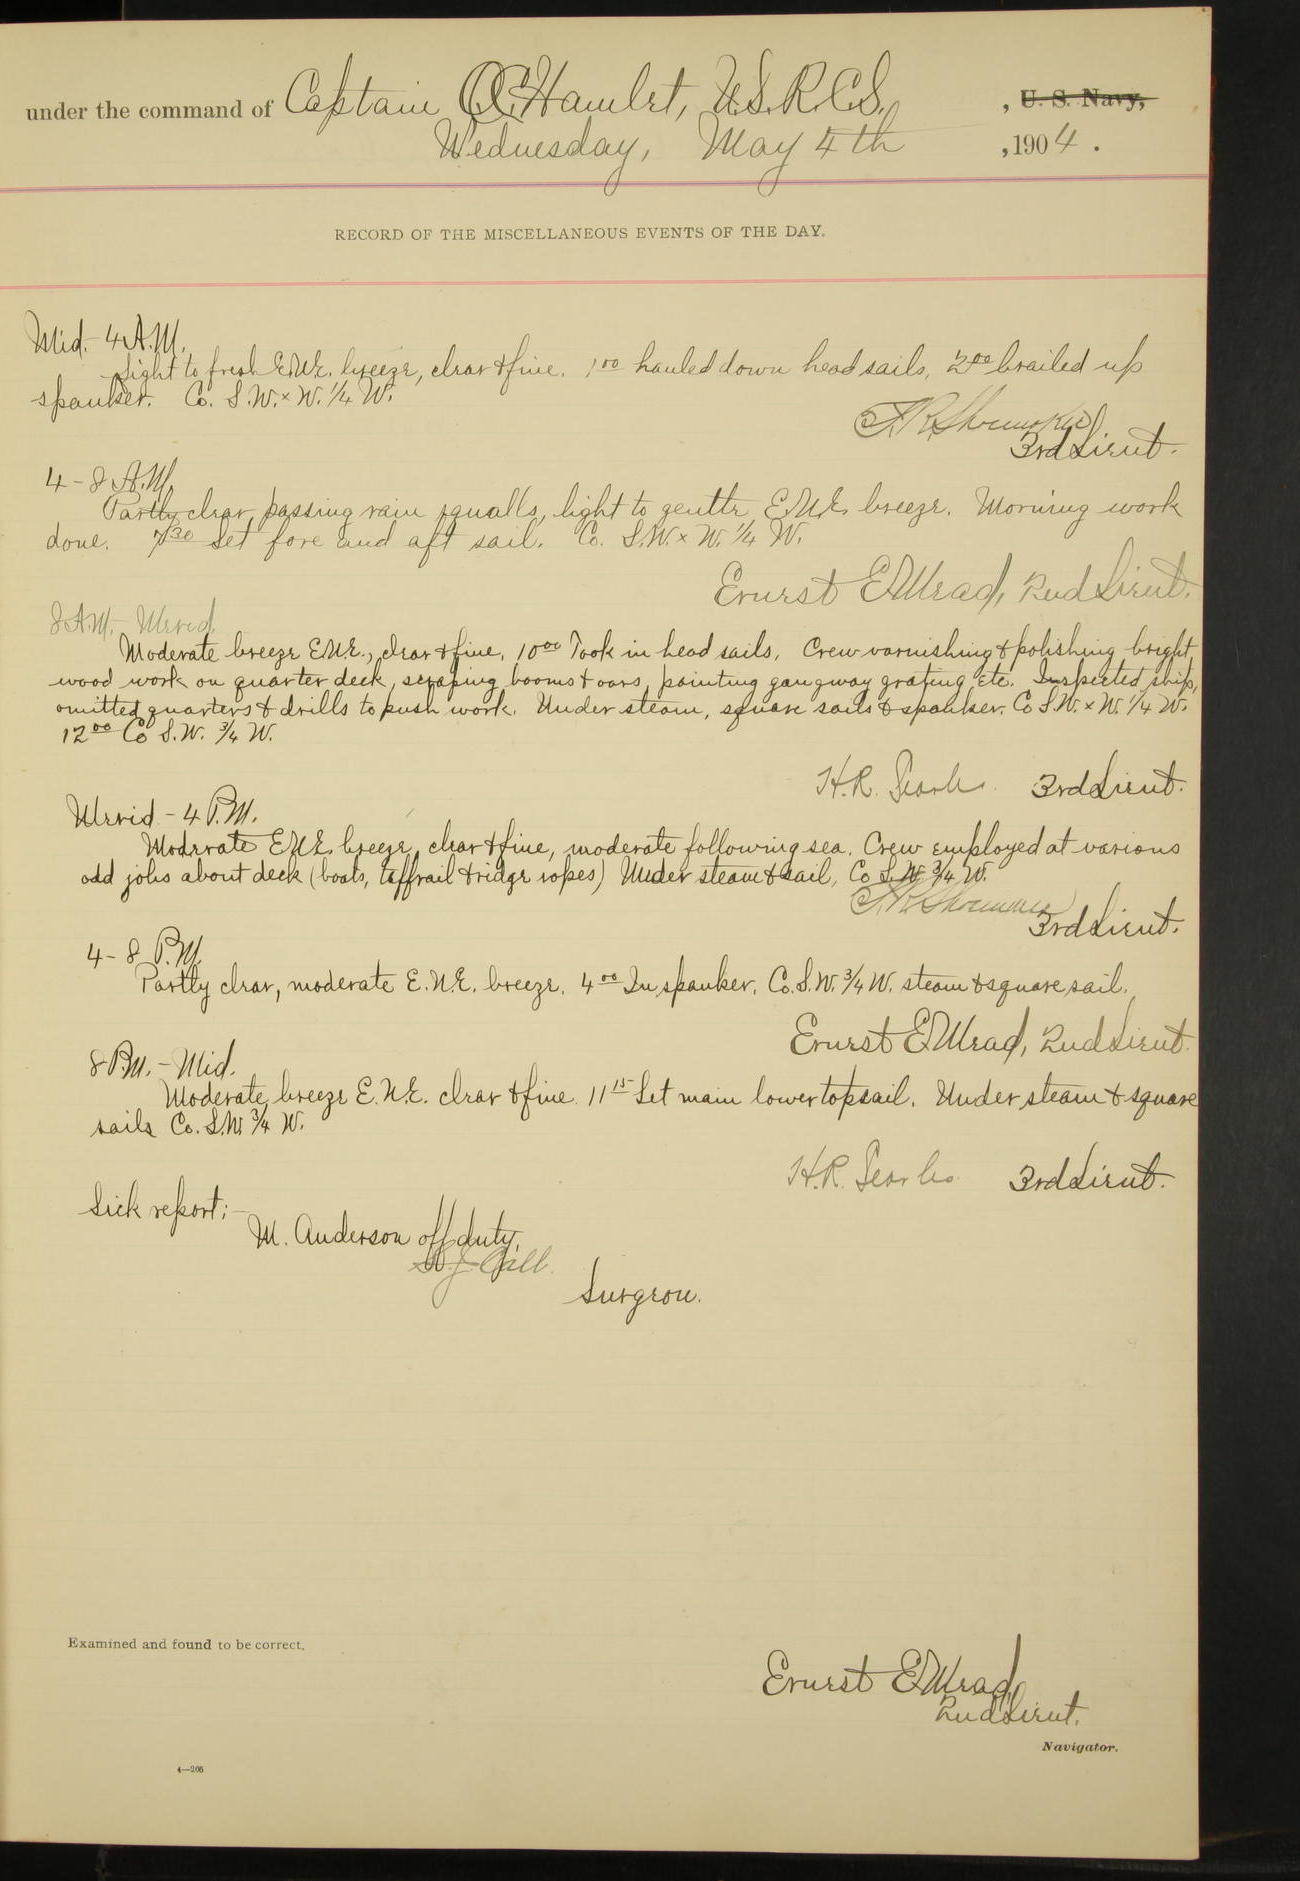 under the command of Captain O.C. Hamlet, U.S.R.C.S. , U. S. Navy,
Wednesday, May 4th , 1904 .
RECORD OF THE MISCELLANEOUS EVENTS OF THE DAY.
Mid. - 4 A.M.
Light to fresh E.N.E. breeze, clear & fine. 1 00 hauled down head sails, 2 00 brailed up
spanker. Co. S.W. x W. 1/4 W.
3rd Lieut.
4 - 8 A.M.
Partly clear, passing rain squalls, light to gentle E.N.E. breeze. Morning work
done. 7 30 Set fore and aft sail. Co. S.W. x W. 1/4 W.
Ernest E. Mead, 2nd Lieut.
8 A.M. - Merid.
Moderate breeze E.N.E., clear & fine. 10 00 Took in head sails. Crew varnishing & polishing bright
wood work on quarter deck, scraping booms & oars, painting gangway grating etc. Inspected ship,
omitted quarters & drills to push work. Under steam, square sails & spanker. Co S.W. x W. 1/4 W.
12 00 Co S.W. 3/4 W.
H.R. Searles 3rd Lieut.
Merid - 4 P.M.
Moderate E.N.E. breeze, clear & fine, moderate following sea. Crew employed at various
odd jobs about deck (boats, taffrail & ridge ropes) Under steam & sail, Co S.W. 3/4 W.
3rd Lieut.
4 - 8 P.M.
Partly clear, moderate E.N.E. breeze. 4 00 In spanker. Co. S.W. 3/4 W. steam & square sail.
Ernest E. Mead, 2nd Lieut.
8 P.M. - Mid.
Moderate breeze E.N.E. clear & fine. 11 15 Set main lower topsail. Under steam & square
sails Co. S.W. 3/4 W.
H.R. Searles 3rd Lieut.
Sick report: -
M. Anderson off duty.
Surgeon.
Examined and found to be correct.
Ernest E. Mead,
2nd Lieut.
Navigator.
4—205